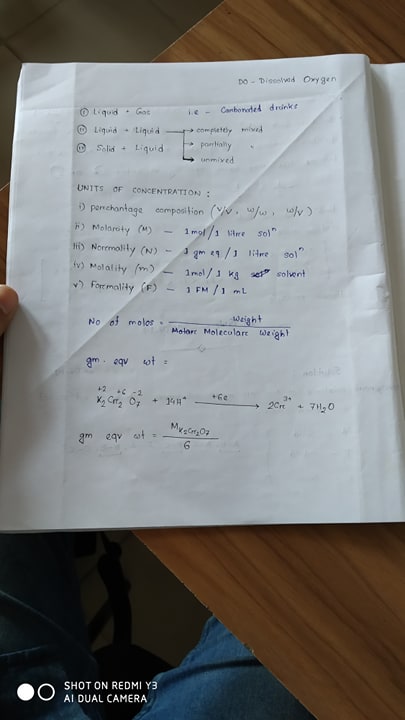 DO - Dissolved Oxygen
(i) Liquid + Gas i.e - Carbonated drinks
(ii) Liquid + Liquid → completely mixed
(iii) Solid + Liquid → partially "
→ unmixed
UNITS OF CONCENTRATION :
i) perchantage composition (v/v, w/w, w/v)
ii) Molarity (M) — 1 mol / 1 litre solⁿ
iii) Normality (N) — 1 gm eq / 1 litre solⁿ
iv) Molality (m) — 1mol / 1 kg solvent
v) Formality (F) — 1 FM / 1 mL
No of moles = Weight
Molar Moleculare Weight
gm. eqv wt =
+2 +6 -2
K₂Cr₂O₇ + 14H⁺ +6e → 2Cr³⁺ + 7H₂O
gm eqv wt = M K₂Cr₂O₇
6
SHOT ON REDMI Y3
AI DUAL CAMERA